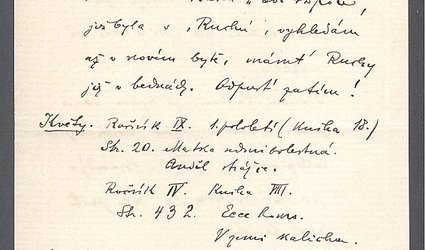 již byla v „Ruchu“, vyhledám
až v novém bytě, mámť Ruchy
již v bednách. Odpusť zatím!
Květy. Ročník IX. 1. pololetí (Kniha 18.)
Str. 20. Matka sedmibolestná.
Anděl strážce.
Ročník IV. Kniha VIII.
Str. 432. Ecce homo.
V zemi kalicha.